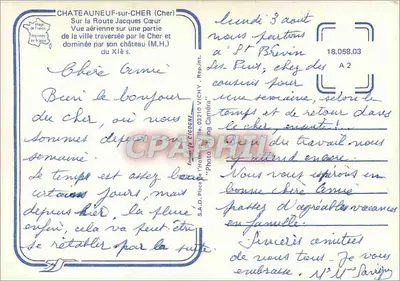 CHATEAUNEUF-sur-CHER (Cher)
Sur la Route Jacques Cœur
Vue aérienne sur une partie
de la ville traversée par le Cher et
dominée par son château (M.H.)
du XIès.
Chère Amie
Bien le bonjour
du cher, où nous
sommes depuis une
semaine.
Le temps est assez beau
certains jours, mais
depuis hier, la pluie
enfin, cela va peut être
se rétablir par la suite.
CPAPHIL
lundi 3 aout
nous partons
à St Brévin
les Pins, chez des
cousins pour
une semaine, selon le
temps et de retour dans
le cher, ensuite!
du travail nous
attend encore.
Nous vous espérons en
bonne chère Amie
passez d'agréables vacances
en famille.
Sincères amitiés
de nous tous. Je vous
embrasse. Mr Mme
18.058.03
A 2